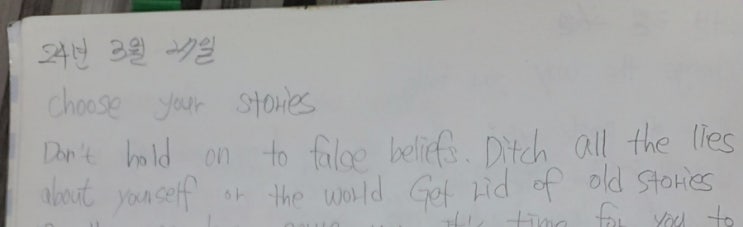 24년 3월 27일
choose your stories
Don't hold on to false beliefs. Ditch all the lies
about yourself or the world Get rid of old stories
time for you to